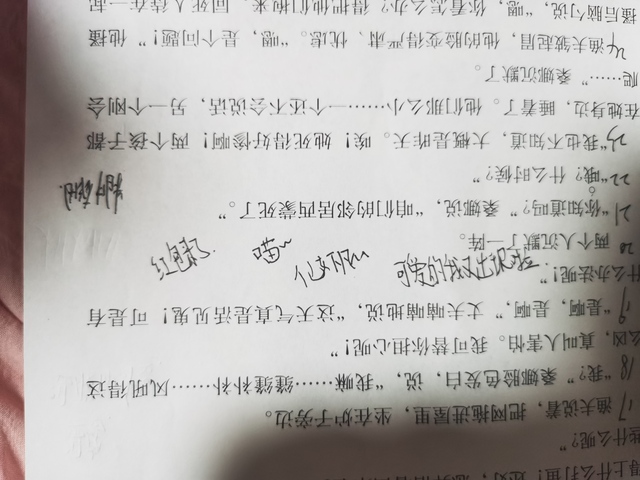 什么呢？”
17 渔夫说着，把网拖进屋里，坐在炉子旁边。
18 “我？”桑娜脸色发白，说，“我嘛……缝缝补补……风吼得这
么凶，真叫人害怕。我可替你担心呢！”
19 “是啊，是啊，”丈夫喃喃地说，“这天气真是活见鬼！可是有
什么办法呢！”
20 两个人沉默了一阵。
21 “你知道吗？”桑娜说，“咱们的邻居西蒙死了。”
22 “哦？什么时候？”
23 “我也不知道，大概是昨天。唉！她死得好惨啊！两个孩子都
在她身边，睡着了。他们那么小……一个还不会说话，另一个刚会
爬……”桑娜沉默了。
24 渔夫皱起眉，他的脸变得严肃、忧虑。“嗯，是个问题！”他搔
搔后脑勺说，“嗯，你看怎么办？得把他们抱来，同死人待在一起
喵~
可爱的我又出现啦